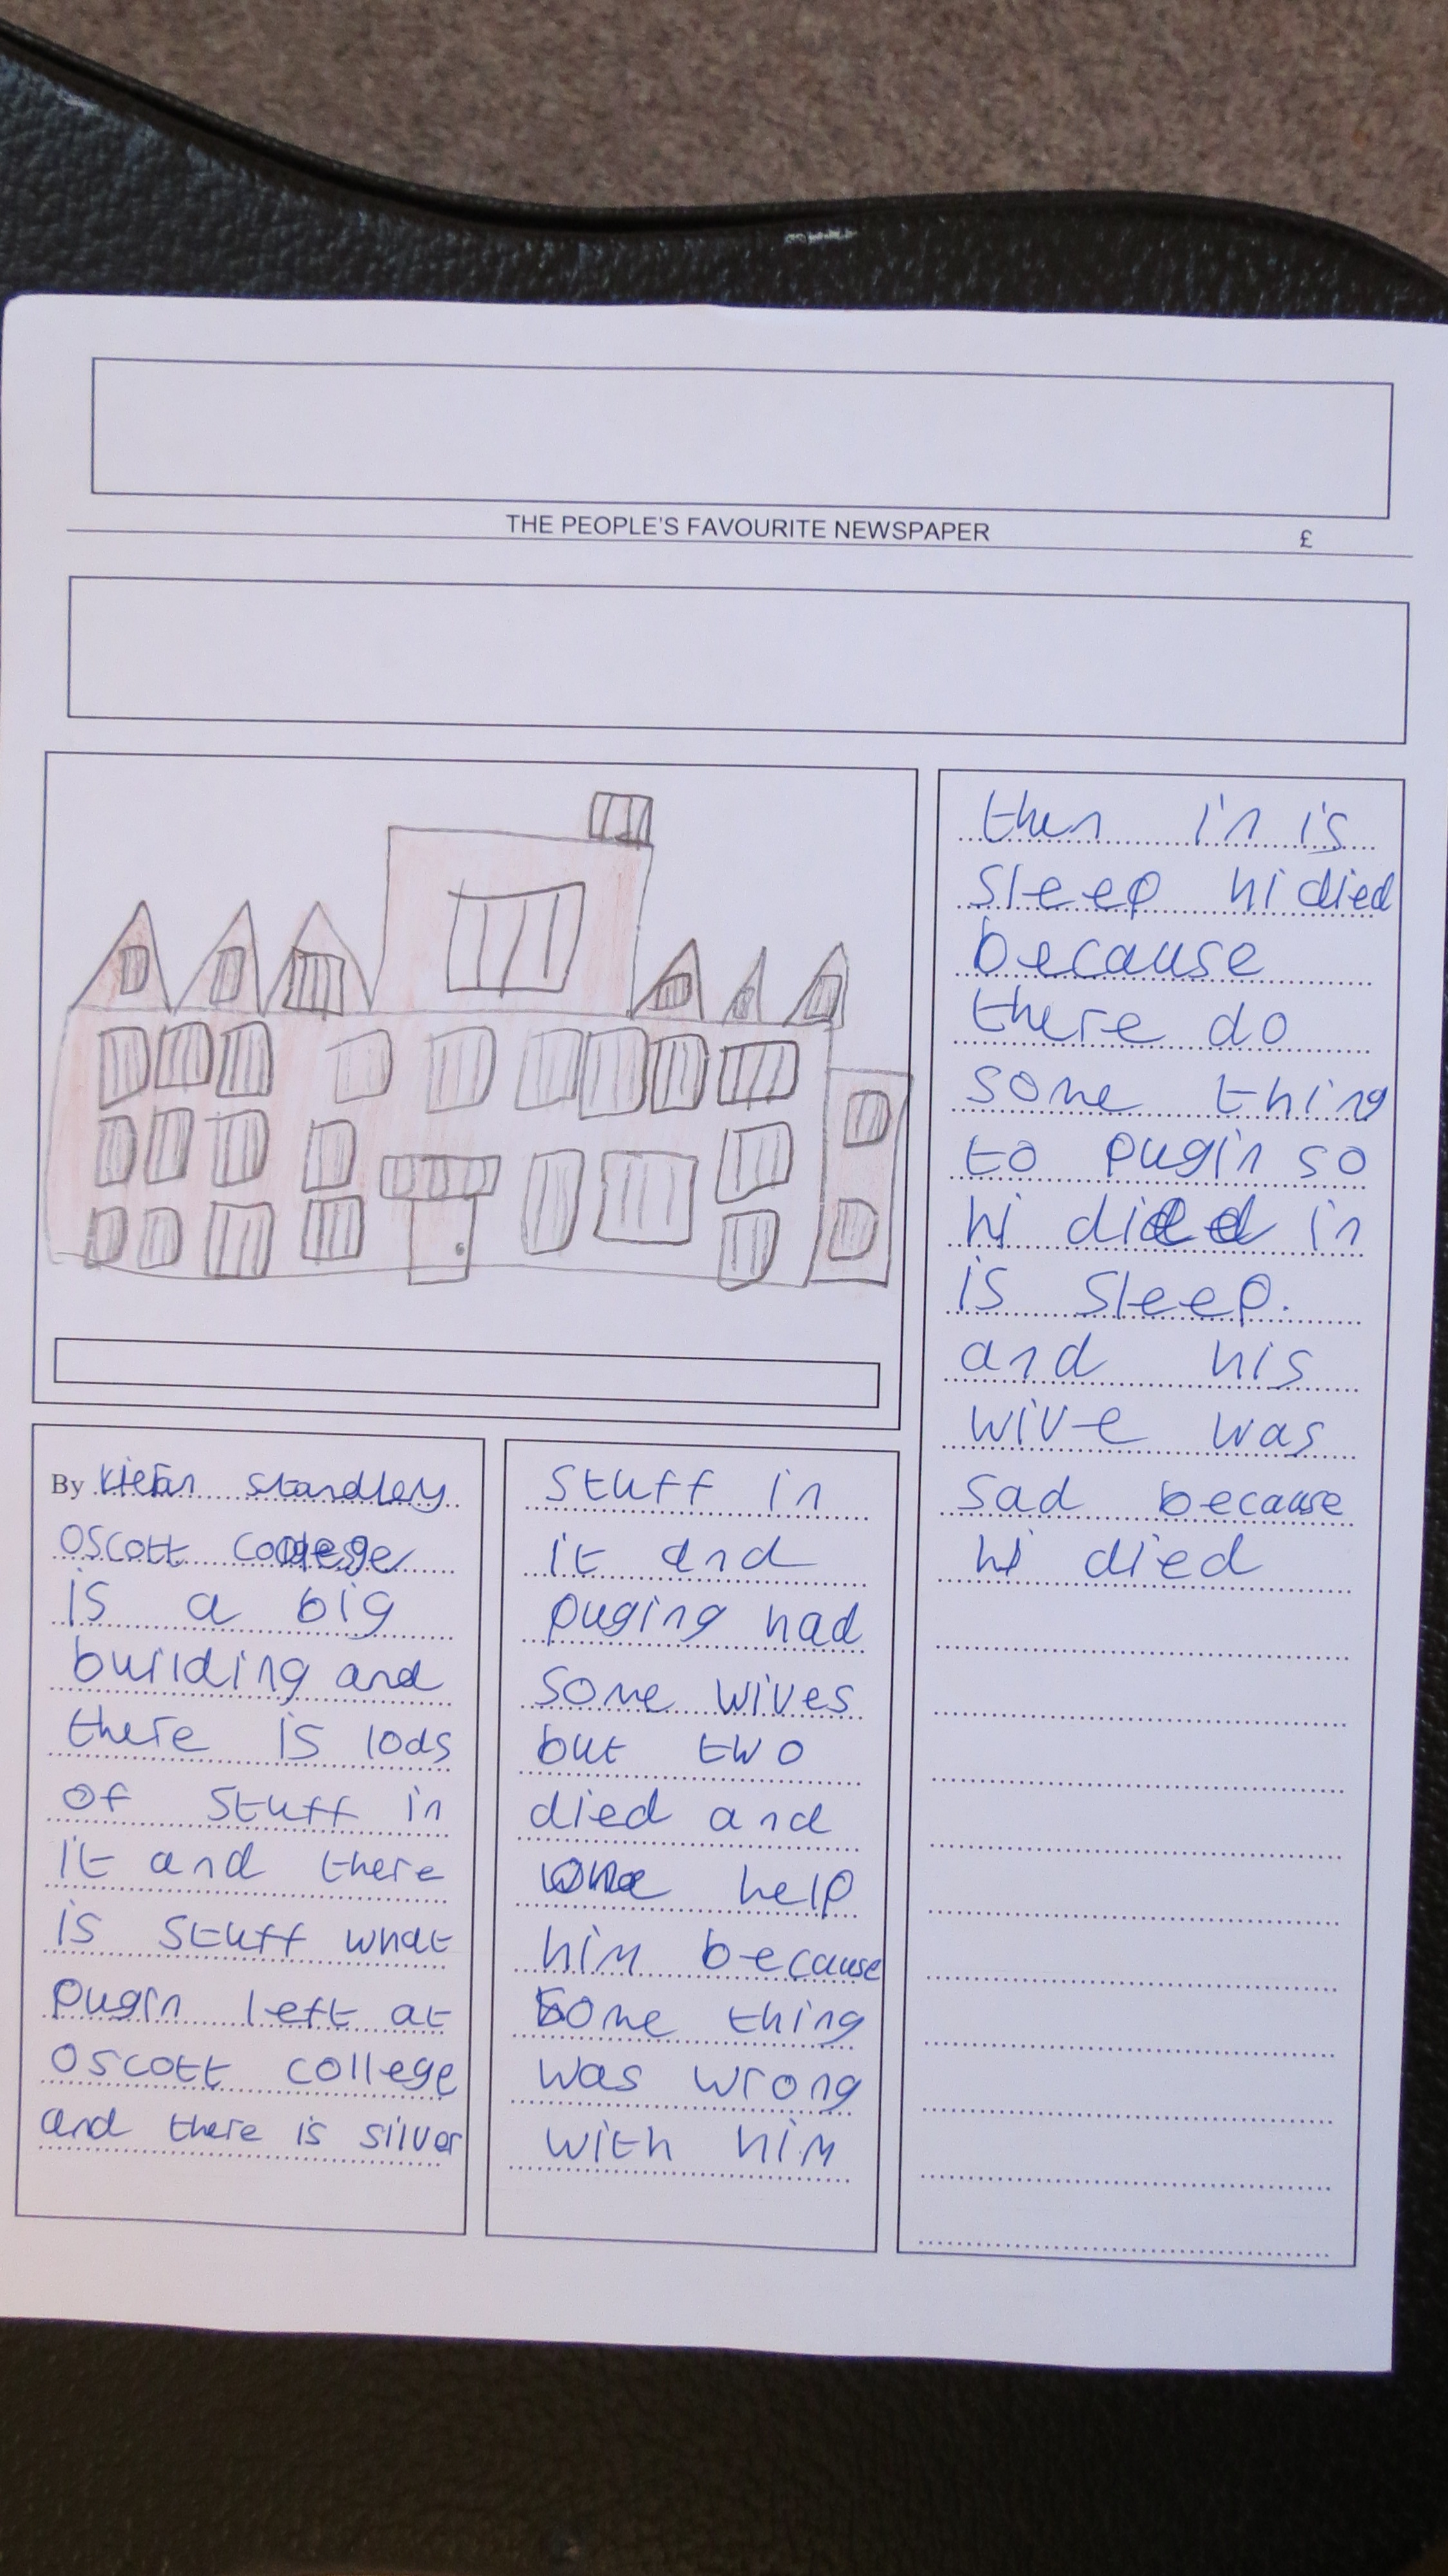 THE PEOPLE'S FAVOURITE NEWSPAPER £
By Kieran Standley
Oscott college
is a big
building and
there is lods
of stuff in
it and there
is stuff what
pugin left at
oscott college
and there is silver
stuff in
it and
puging had
some wives
but two
died and
one help
him because
some thing
was wrong
with him
then in is
sleep hi died
because
there do
some thing
to pugin so
hi died in
is sleep.
and his
wive was
sad because
hi died